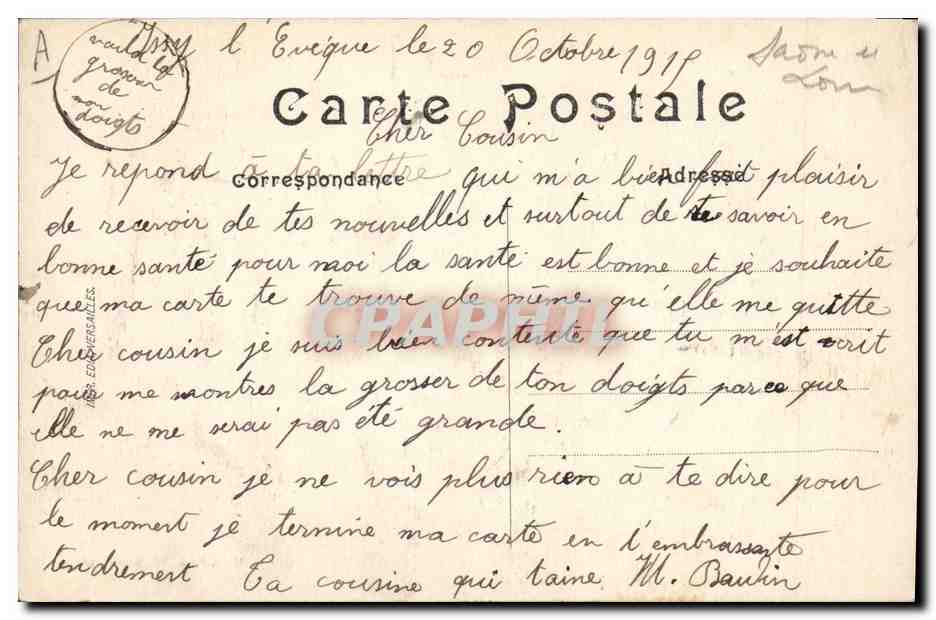 A
voila la
grosseur
de
mon
doigts
Issy l'Evêque le 20 Octobre 1915
Saône et
Loire
Carte Postale
Cher Cousin
Je repond à ta lettre qui m'a bien fait plaisir
Correspondance
Adresse
de recevoir de tes nouvelles et surtout de te savoir en
bonne santé pour moi la santé est bonne et je souhaite
que ma carte te trouve de même qu'elle me quitte
Cher cousin je suis bien contente que tu m'est ecrit
pour me montres la grosser de ton doigts parce que
elle ne me serai pas été grande.
Cher cousin je ne vois plus rien à te dire pour
le moment je termine ma carte en t'embrassante
tendrement Ta cousine qui t'aine M.
IMP. EDIA VERSAILLES.
CPAPHIL